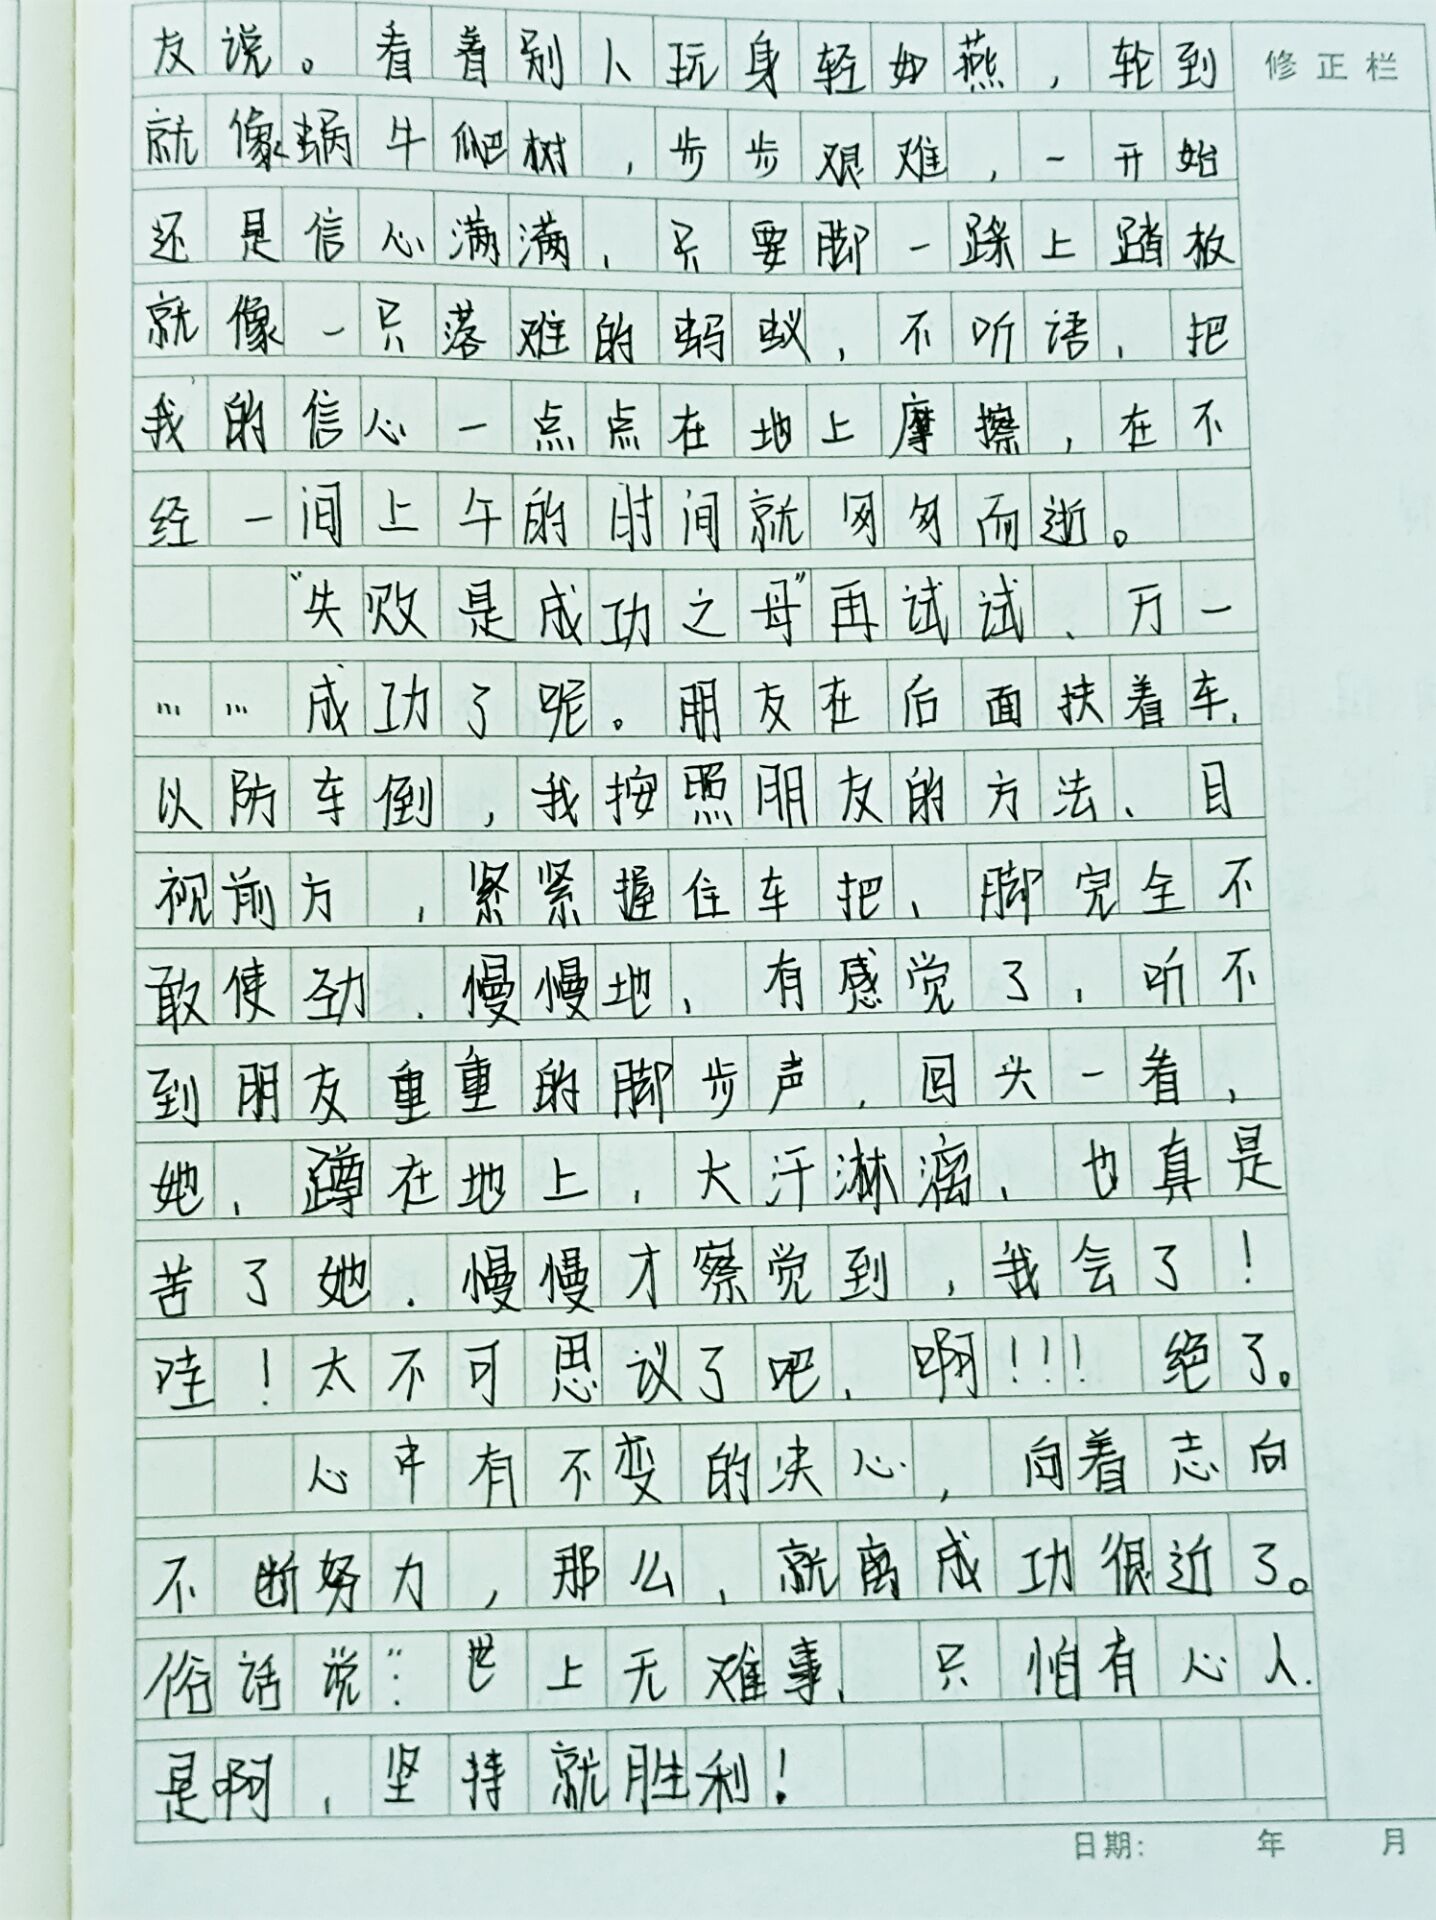 友说。看着别人玩身轻如燕，轮到
修正栏
就像蜗牛爬树，步步艰难，一开始
还是信心满满，只要脚一踩上踏板
就像一只落难的蚂蚁，不听话，把
我的信心一点点在地上摩擦，在不
经一间上午的时间就匆匆而逝。
“失败是成功之母”再试试、万一
……成功了呢。朋友在后面扶着车，
以防车倒，我按照朋友的方法、目
视前方，紧紧握住车把，脚完全不
敢使劲．慢慢地，有感觉了，听不
到朋友重重的脚步声，回头一看，
她，蹲在地上，大汗淋漓，也真是
苦了她．慢慢才察觉到，我会了！
哇！太不可思议了吧，啊！！！绝了。
心中有不变的决心，向着志向
不断努力，那么，就离成功很近了。
俗话说“：世上无难事，只怕有心人．
是啊，坚持就胜利！
日期： 年 月